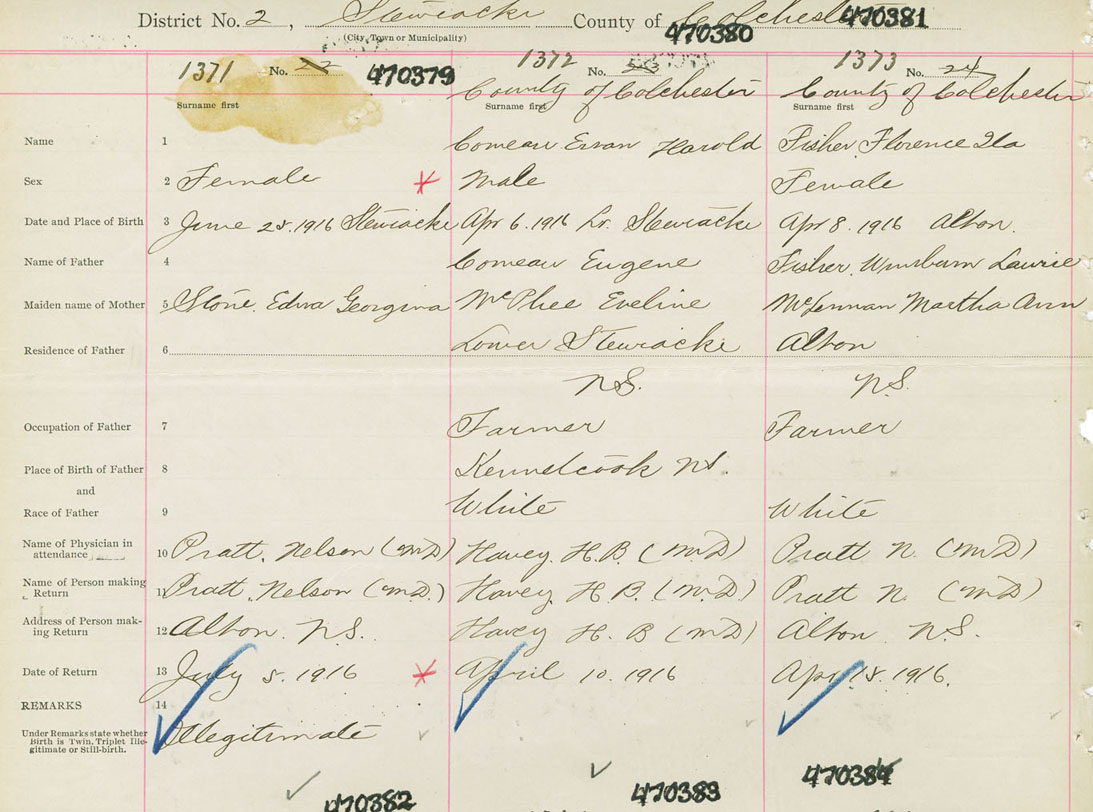 District No. 2, Stewiacke County of Colchester
(City, Town or Municipality)
470380 470381
1371 No. 22 470379 1372 No. 23 1373 No. 24
County of Colchester County of Colchester
Surname first Surname first Surname first
Name 1 Comeau Ervan Harold Fisher, Florence Ila
Sex 2 Female Male Female
Date and Place of Birth 3 June 25. 1916 Stewiacke Apr 6. 1916 Lr. Stewiacke Apr 8. 1916 Alton.
Name of Father 4 Comeau Eugene Fisher, Laurie
Maiden name of Mother 5 Stone, Edna Georgina McPhee Eveline McLennan Martha Ann
Residence of Father 6 Lower Stewiacke Alton
N.S. N.S.
Occupation of Father 7 Farmer Farmer
Place of Birth of Father 8 Kennetcook N.S.
and
Race of Father 9 White White
Name of Physician in
attendance 10 Pratt, Nelson (M.D) Havey, H.B. (M.D) Pratt N. (M.D)
Name of Person making
Return 11 Pratt, Nelson (M.D.) Havey, H.B. (M.D.) Pratt N. (M.D)
Address of Person mak-
ing Return 12 Alton. N.S. Havey H. B (M.D) Alton N.S.
Date of Return 13 July 5. 1916 April 10. 1916 Apr 18. 1916.
REMARKS 14
Under Remarks state whether
Birth is Twin, Triplet Ille-
gitimate or Still-birth.
Illegitimate
470382 470383 470384